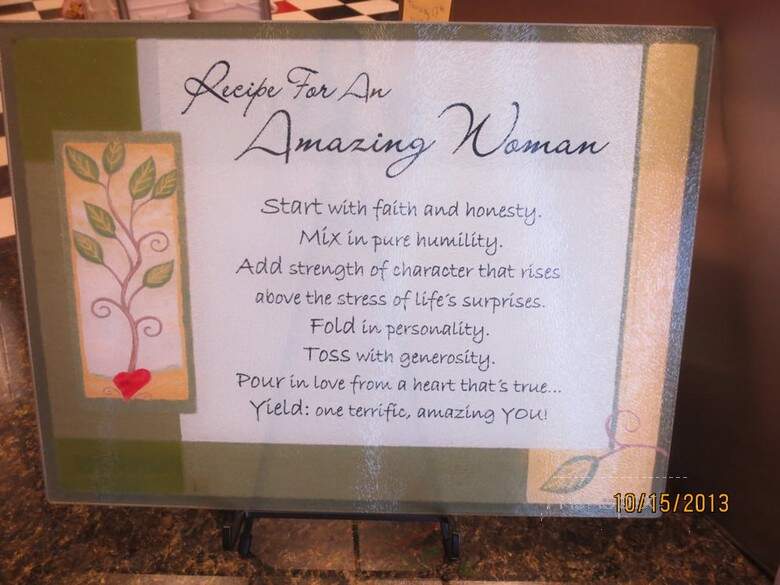 Recipe For An
Amazing Woman
Start with faith and honesty.
Mix in pure humility.
Add strength of character that rises
above the stress of life's surprises.
Fold in personality.
Toss with generosity.
Pour in love from a heart that's true...
Yield: one terrific, amazing YOU!
10/15/2013